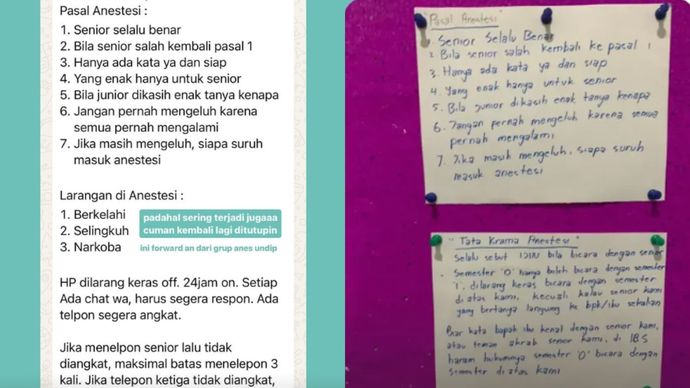 Pasal Anestesi :
1. Senior selalu benar
2. Bila senior salah kembali pasal 1
3. Hanya ada kata ya dan siap
4. Yang enak hanya untuk senior
5. Bila junior dikasih enak tanya kenapa
6. Jangan pernah mengeluh karena
semua pernah mengalami
7. Jika masih mengeluh, siapa suruh
masuk anestesi
Larangan di Anestesi :
1. Berkelahi
2. Selingkuh
3. Narkoba
padahal sering terjadi jugaaa
cuman kembali lagi ditutupin
ini forward an dari grup anes undip
HP dilarang keras off. 24jam on. Setiap
Ada chat wa, harus segera respon. Ada
telpon segera angkat.
Jika menelpon senior lalu tidak
diangkat, maksimal batas menelepon 3
kali. Jika telepon ketiga tidak diangkat,
"Pasal Anestesi"
Senior Selalu Benar
2. Bila senior salah kembali ke pasal 1
3. Hanya ada kata ya dan siap
4. Yang enak hanya untuk senior
5. Bila junior dikasih enak tanya kenapa
6. Jangan pernah mengeluh karena semua
pernah mengalami
7. Jika masih mengeluh, siapa suruh
masuk anestesi
"Tata Krama Anestesi"
Selalu sebut IZIN bila bicara dengan senior
Semester "0" hanya boleh bicara dengan semester
1, dilarang keras bicara dengan semester
di atas kami, kecuali kalau senior kami
yang bertanya langsung ke bpk/ibu sekalian
kata bapak ibu kenal dengan senior kami,
atau teman akrab senior kami, di IBS
haram hukumnya semester "0" bicara dengan
semester di atas kami